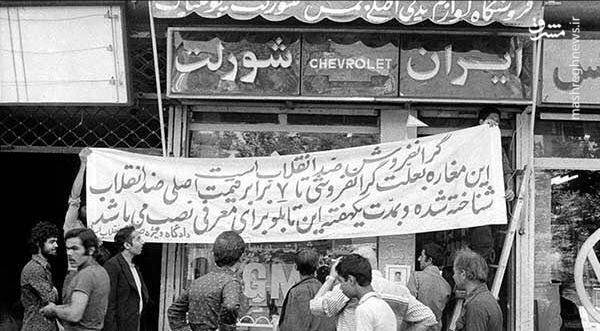 فروشگاه لوازم یدکی اصلی بنز شورلت بیوک
مشرق
mashreghnews.ir
ایران
CHEVROLET
شورلت
گرانفروش ضد انقلاب است
این مغازه بعلت گرانفروشی تا ۷ برابر قیمت اصلی ضد انقلاب
شناخته شده و بمدت یکهفته این تابلو برای معرفی نصب می باشد
دادگاه ویژه
GM